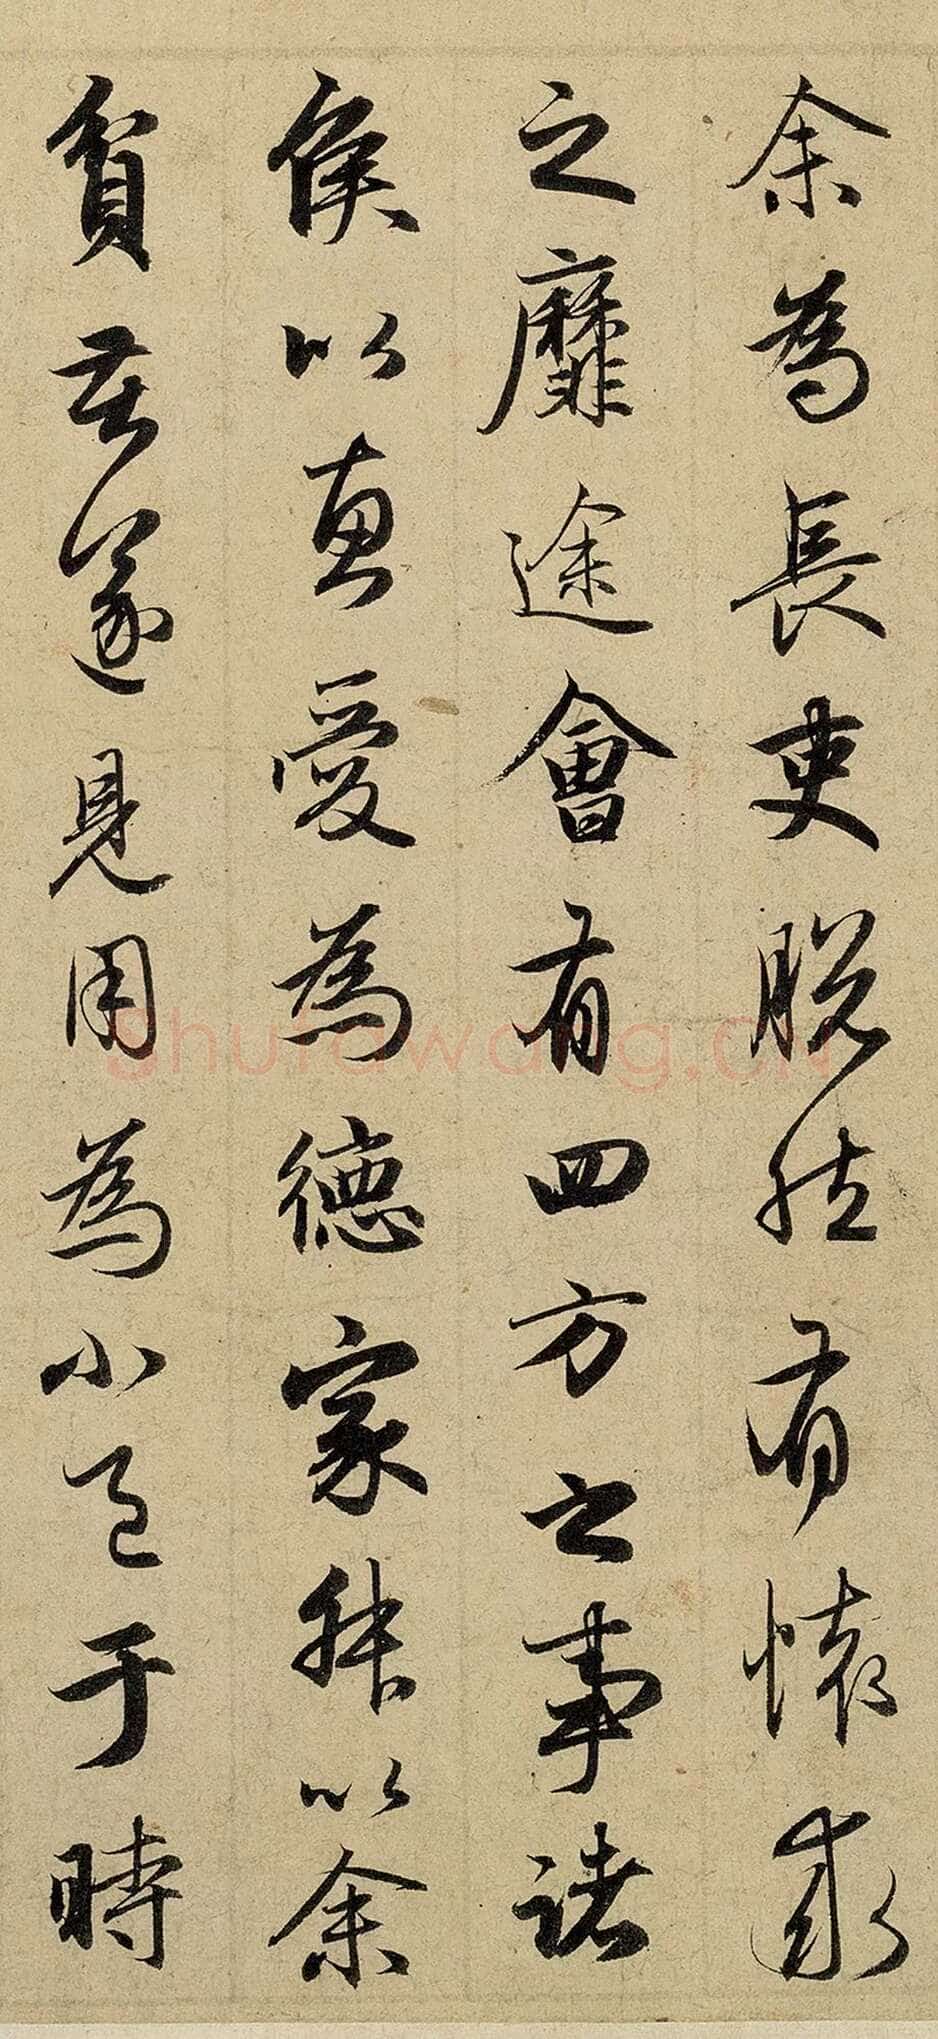 余為長吏脫然有懷求
之靡途會有四方之事諸
侯以惠愛為德家叔以余
貧苦遂見用為小邑于時
shufawang.cn